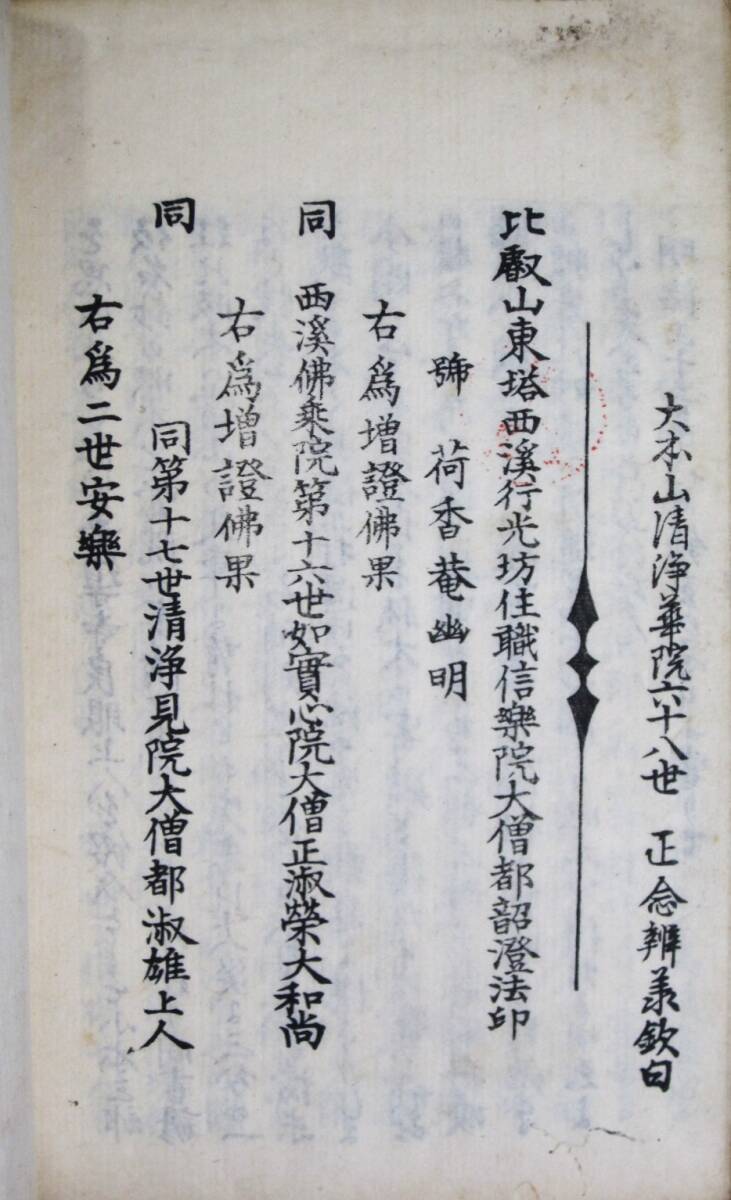 大本山清浄華院六十八世　正念辨義欽白
比叡山東塔西溪行光坊住職信樂院大僧都韶澄法印
號　荷香菴幽明
右爲增證佛果
同　西溪佛乘院第十六世如實心院大僧正淑榮大和尚
右爲增證佛果
同　同第十七世清淨見院大僧都淑雄上人
右爲二世安樂